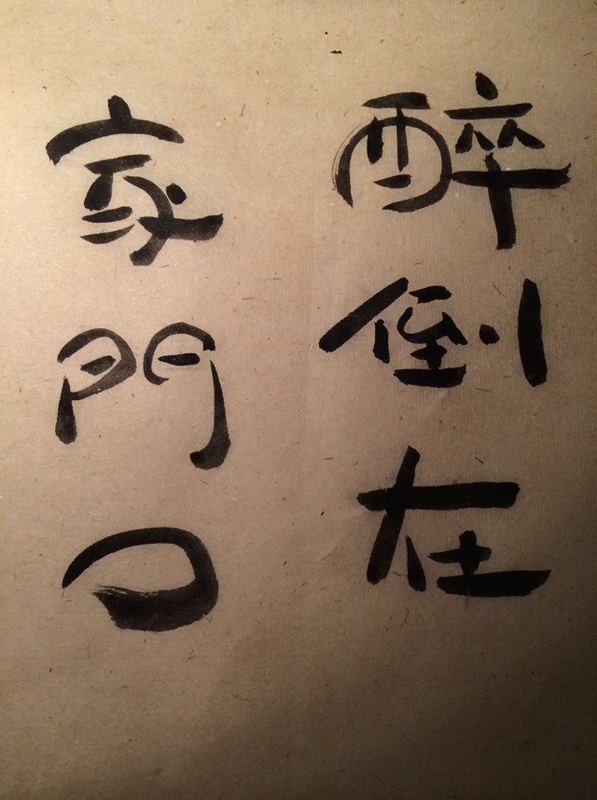 醉倒在
家門口